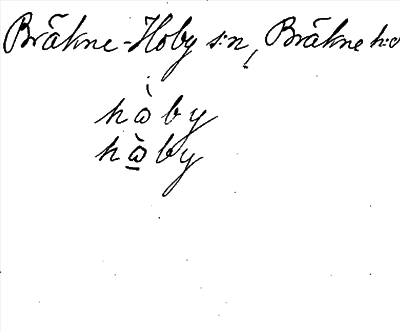 Bräkne-Hoby s:n, Bräkne h:d
hò̤by
hò̲by